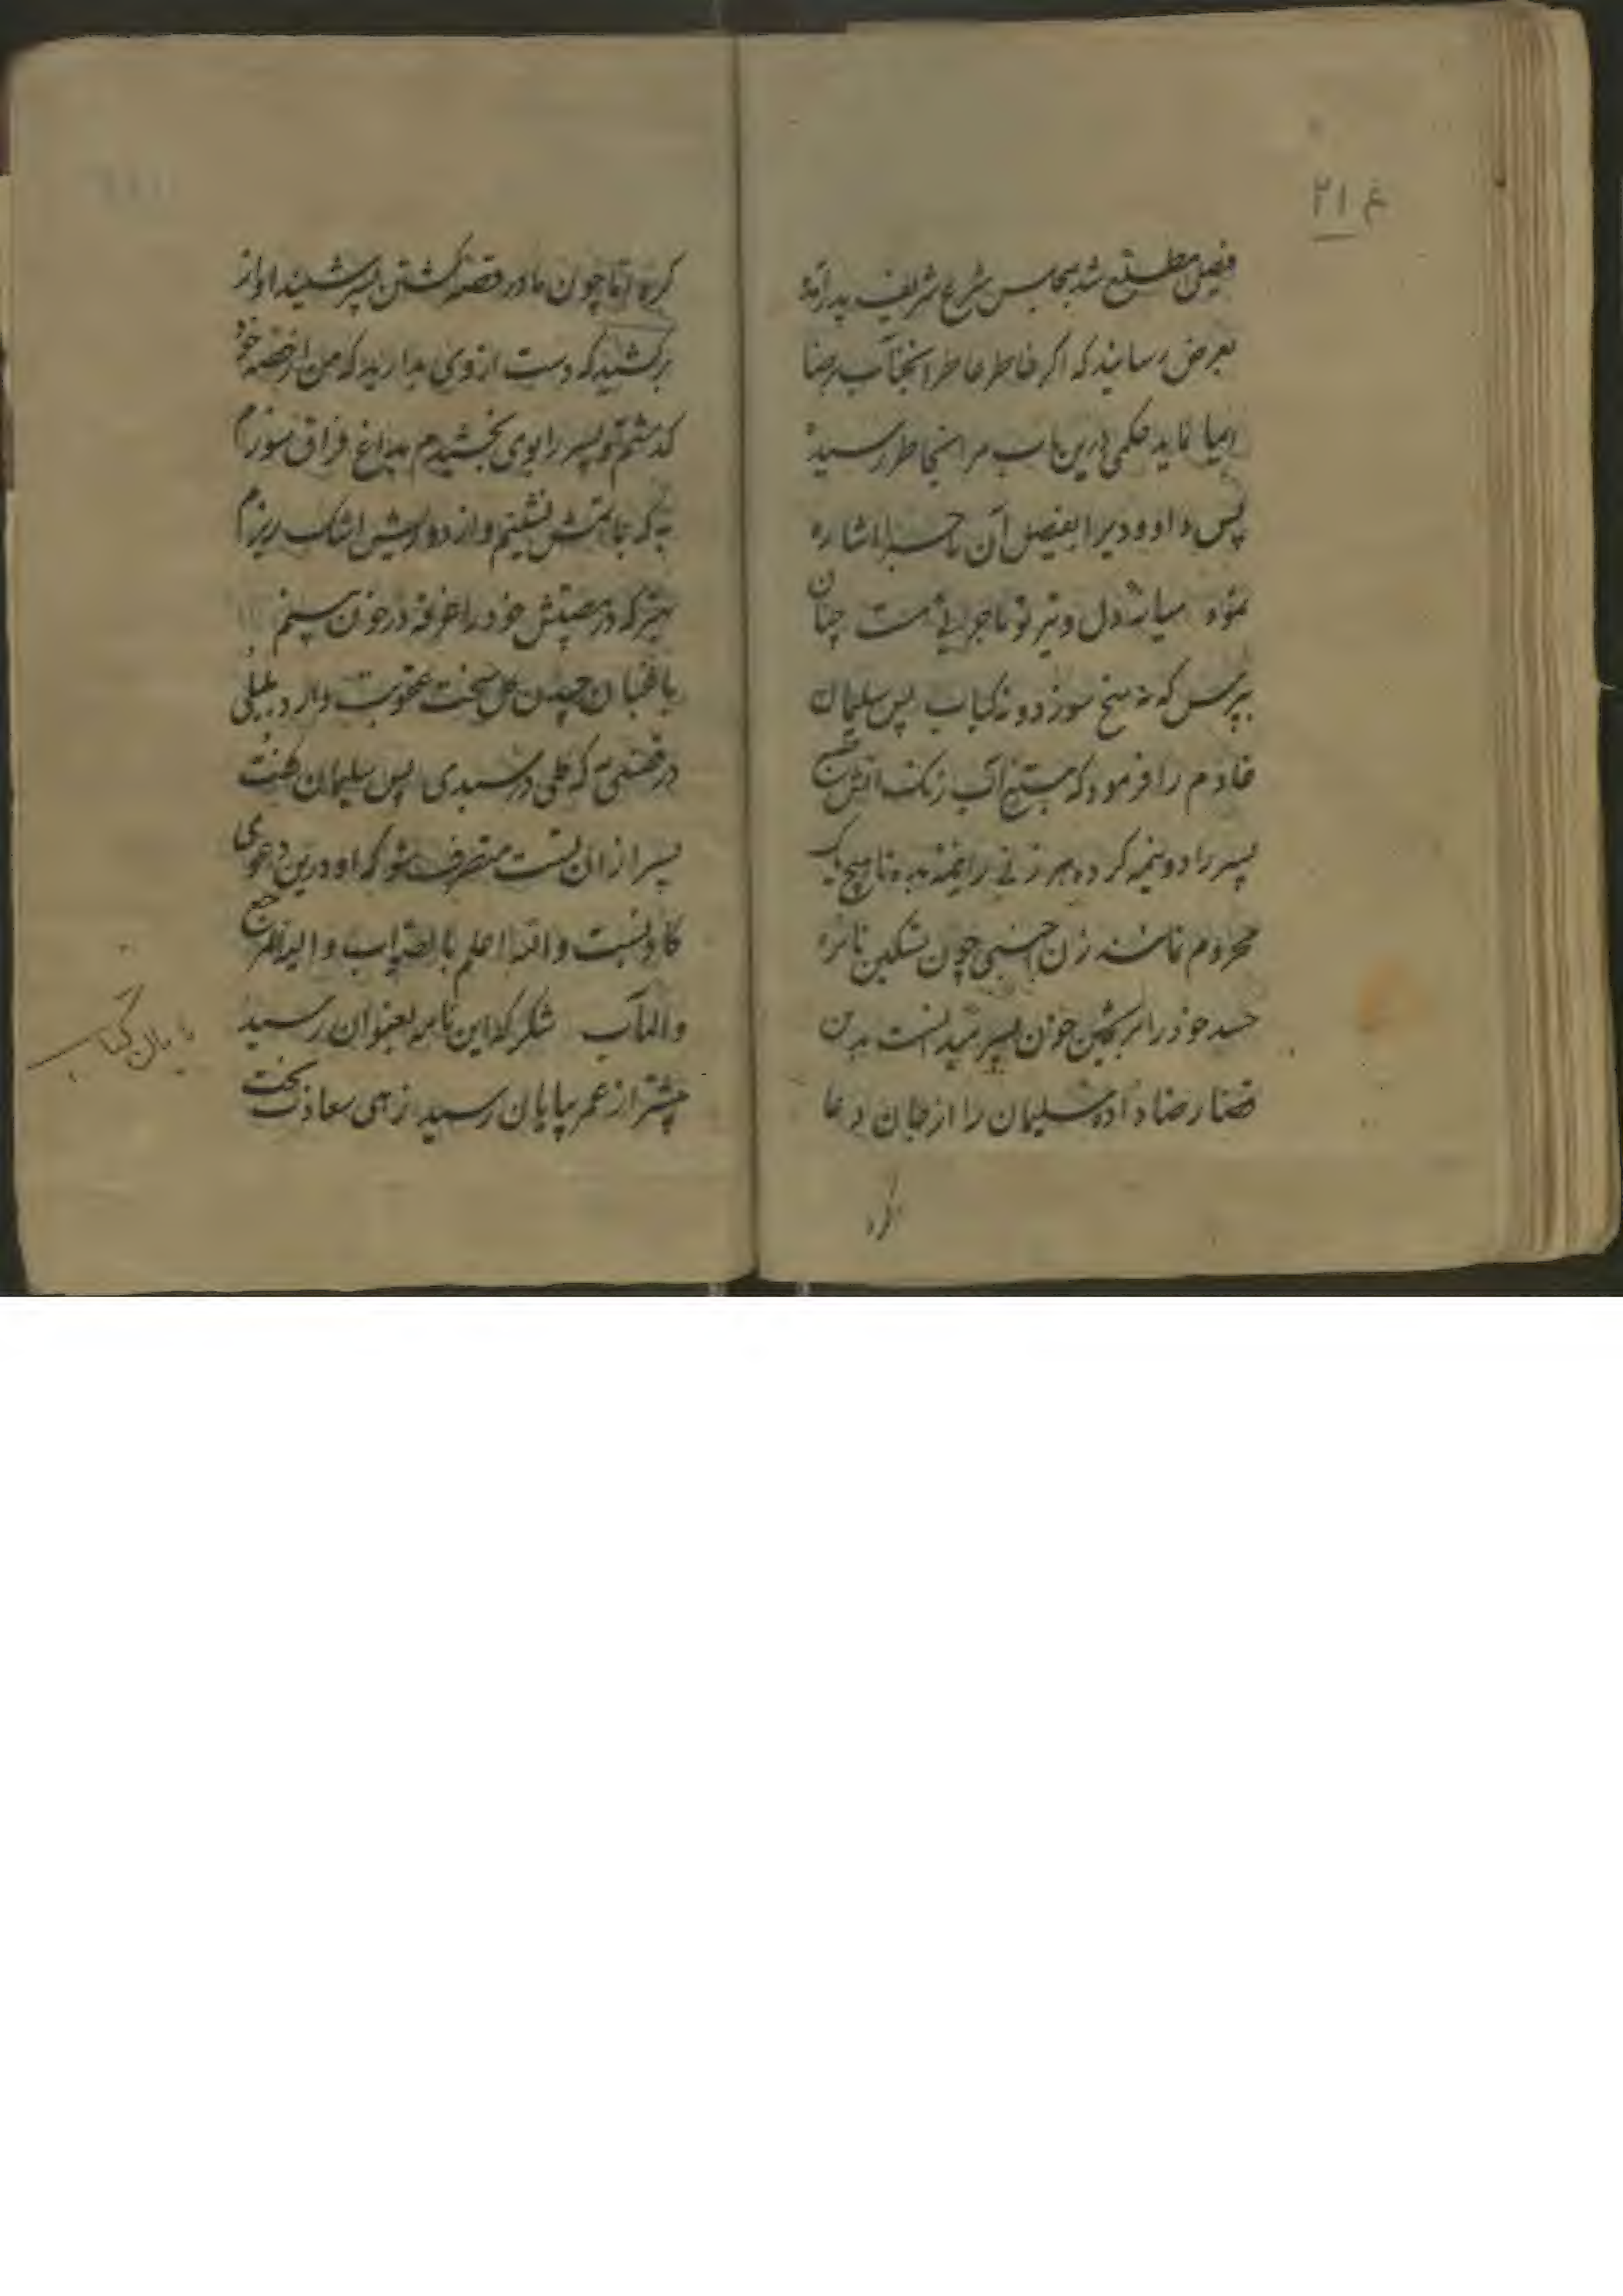 غ ۲۱
شد بمجلس شرع شریف پدر آمده
بعرض رسانید که اگر خاطر عاطر آنجناب رضا
نماید حکمی درین باب مرا بخاطر رسیده
پس داود ویرا بفیصل آن اشاره
نمود میانه دل و تیر تو ماجرایی هست چنان
بپرس که نه سیخ سوزد و نه کباب پس سلیمان
خادم را فرمود که بتیغ آب رنگ آتش
پسر را دو نیمه کرده بهر زنی را نیمه بده تا هیچ یک
محروم نباشند زن اجنبی چون تسکین نائره
حسد خود را بریختن خون پسر میدانست بدین
قضا رضا داده سلیمان را از جان دعا
کرد
کرد اما چون مادر قصه کشتن پسر شنید آواز
برکشید که دست از وی بدارید که من از قصه خود
گذشتم تو پسر را بوی بخشیدم بداغ فراق سوزم
به که بماتمش نشینم و از دو اشک ریزم
بهتر که در مصیبتش خود را غرقه در خون بینم
باغبان چیدن گل سخت عقوبت دارد بلبلی
در قفسی به که گلی در سبدی پس سلیمان گفت
پسر از آن تست متصرف شو که او درین دعوی
کاذبست والله اعلم بالصواب و الیه المرجع
والمآب شکر که این نامه بعنوان رسید
پیشتر از عمر بپایان رسید زهی سعادت بخت
پایان کتاب